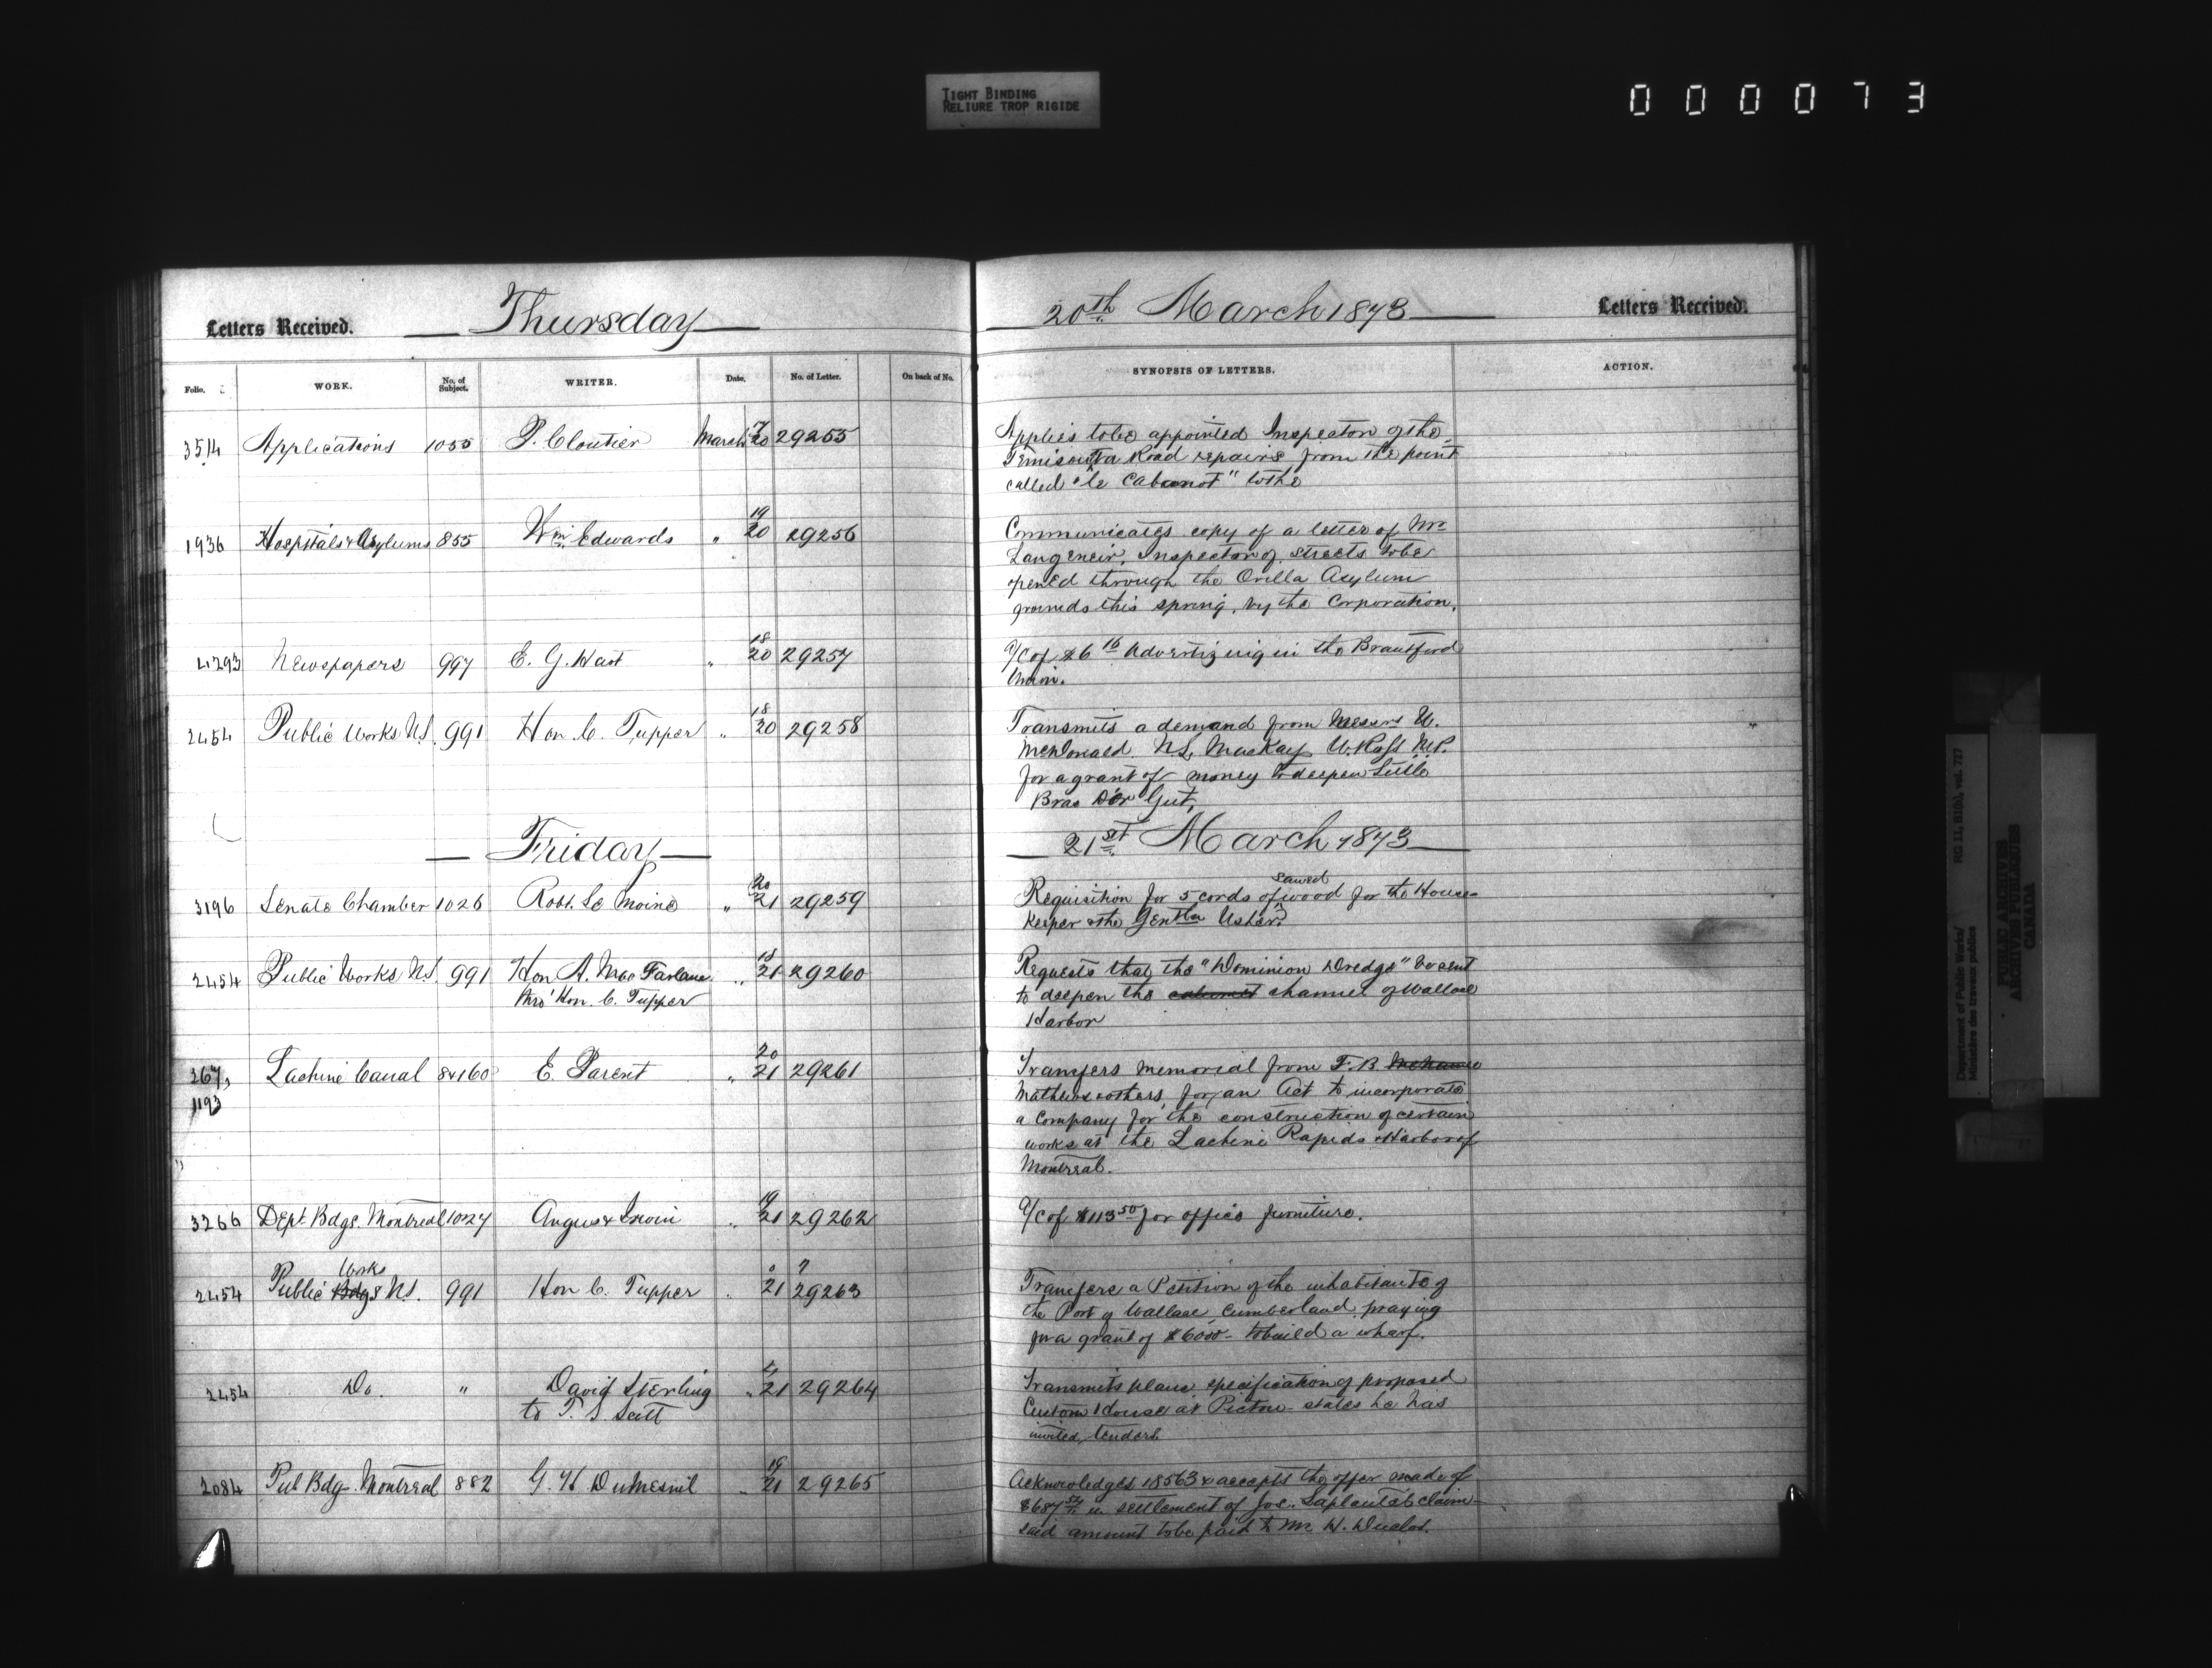 TIGHT BINDING
RELIURE TROP RIGIDE
000073
Letters Received. Thursday 20th March 1873 Letters Received.
Folio. WORK. No. of Subject. WRITER. Date. No. of Letter. On back of No. SYNOPSIS OF LETTERS. ACTION.
3514 Applications 1055 P. Cloutier March 17/20 29255 Applies to be appointed Inspector of the
Temiscouata Road repairs from the point
called "le Cabanot" to the
1936 Hospitals & Asylums 855 Wm Edwards " 19/20 29256 Communicates copy of a letter of Mr
Inspector of streets to be
opened through the Orilla Asylum
grounds this spring, by the Corporation.
4293 Newspapers 997 E. G. Hart " 18/20 29257 a/c of $6 16 Advertizing in the Brantford
Union.
2454 Public Works N.S. 991 Hon C. Tupper " 18/20 29258 Transmits a demand from Messrs W.
McDonald N.L. MacKay W. Ross M.P.
for a grant of money to deepen Little
Bras D'or Gut,
Friday 21st March 1873
3196 Senate Chamber 1026 Robt. Le Moine " 20/21 29259 Requisition for 5 cords of sawed wood for the House-
keeper & the Gentln Usher.
2454 Public Works N.S. 991 Hon. A. MacFarlane " 18/21 29260 Requests that the "Dominion Dredge" be sent
thro' Hon. C. Tupper to deepen the channel of Wallace
Harbor
267, Lachine Canal 8&160 E. Parent " 20/21 29261 Transfers memorial from F. B.
1193 Mathews & others, for an Act to incorporate
a Company for the construction of certain
works at the Lachine Rapids & Harbor of
Montreal.
3266 Dept. Bdgs. Montreal 1027 Angus & Irwin " 19/21 29262 a/c of $113 50 for office furniture.
2454 Public Works N.S. 991 Hon C. Tupper " 21 29263 Transfers a Petition of the inhabitants of
the Port of Wallace, Cumberland praying
for a grant of $6000 - to build a wharf.
2454 Do. " David Sterling " 21 29264 Transmits plans, specification of proposed
to T. S. Scott Custom House at Pictou - states he has
invited tenders
2084 Pub Bdg. Montreal 882 G. H. Dumesnil " 19/21 29265 Acknowledges 18563 & accepts the offer made of
in settlement of Jos. Laplante's claim -
said amount to be paid to Mr. H. Duclos.
Department of Public Works/ RG 11, B1(b), vol. 727
Ministère des travaux publics
PUBLIC ARCHIVES
ARCHIVES PUBLIQUES
CANADA